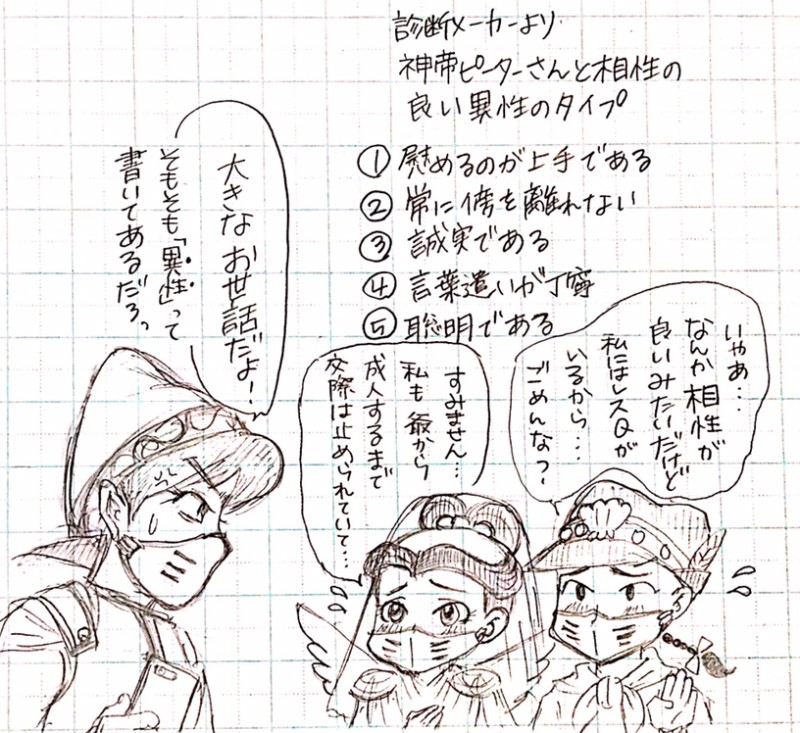 診断メーカーより
神帝ピーターさんと相性の
良い異性のタイプ
① 慰めるのが上手である
② 常に傍を離れない
③ 誠実である
④ 言葉遣いが丁寧
⑤ 聡明である
いやぁ…
なんか相性が
良いみたいだけど
私にはレスQが
いるから…
ごめんな？
すみません…
私も爺から
成人するまで
交際は止められていて…
大きなお世話だよ！
そもそも「異性」って
書いてあるだろっ